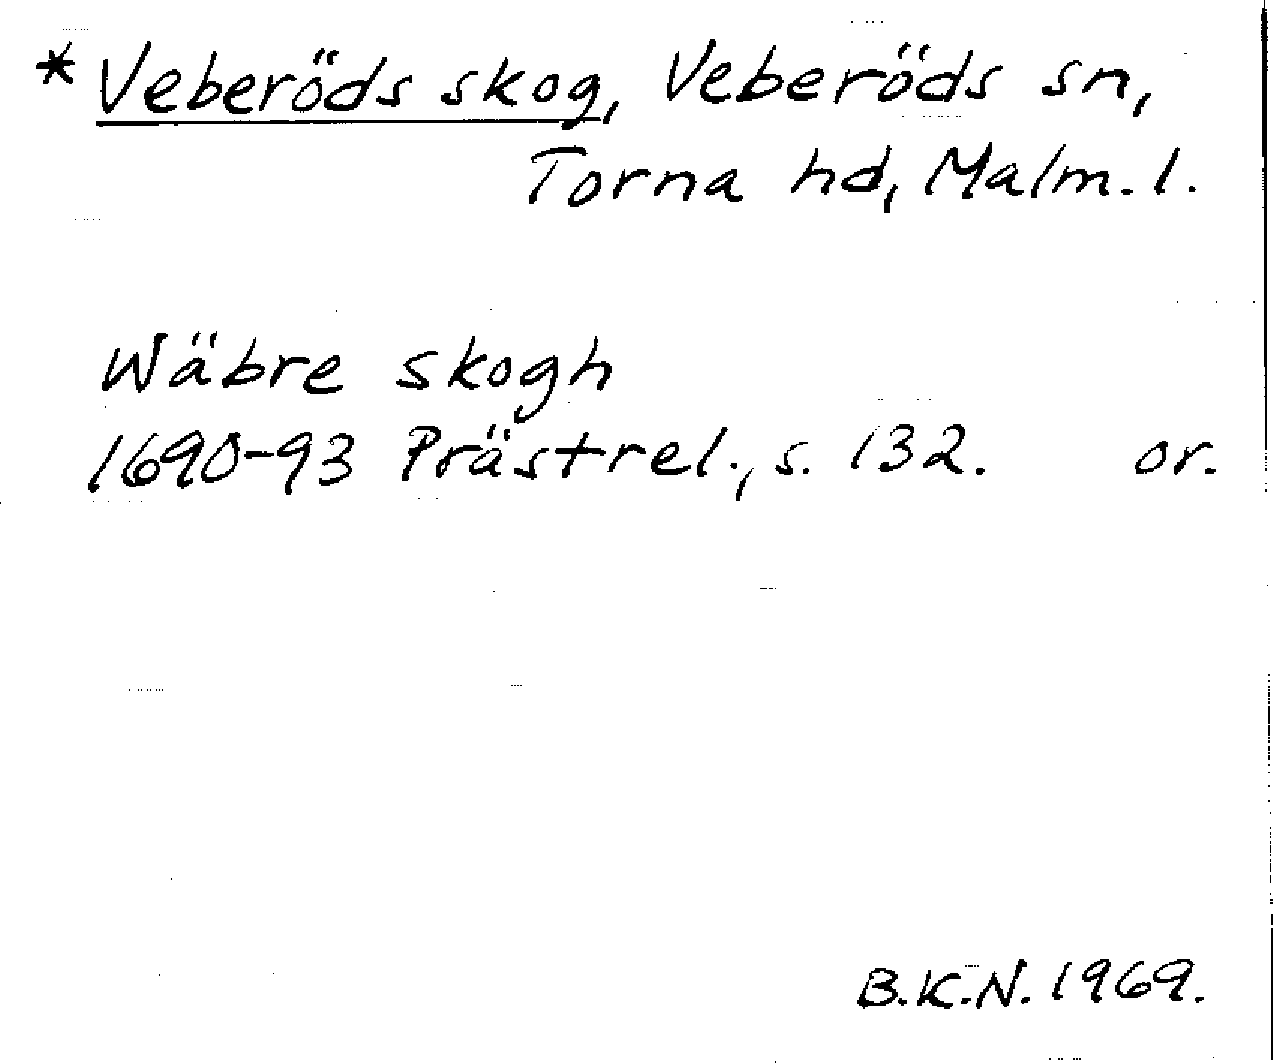 * Veberöds skog, Veberöds sn,
Torna hd, Malm. l.
Wäbre skogh
1690-93 Prästrel., s. 132. or.
B.K.N. 1969.